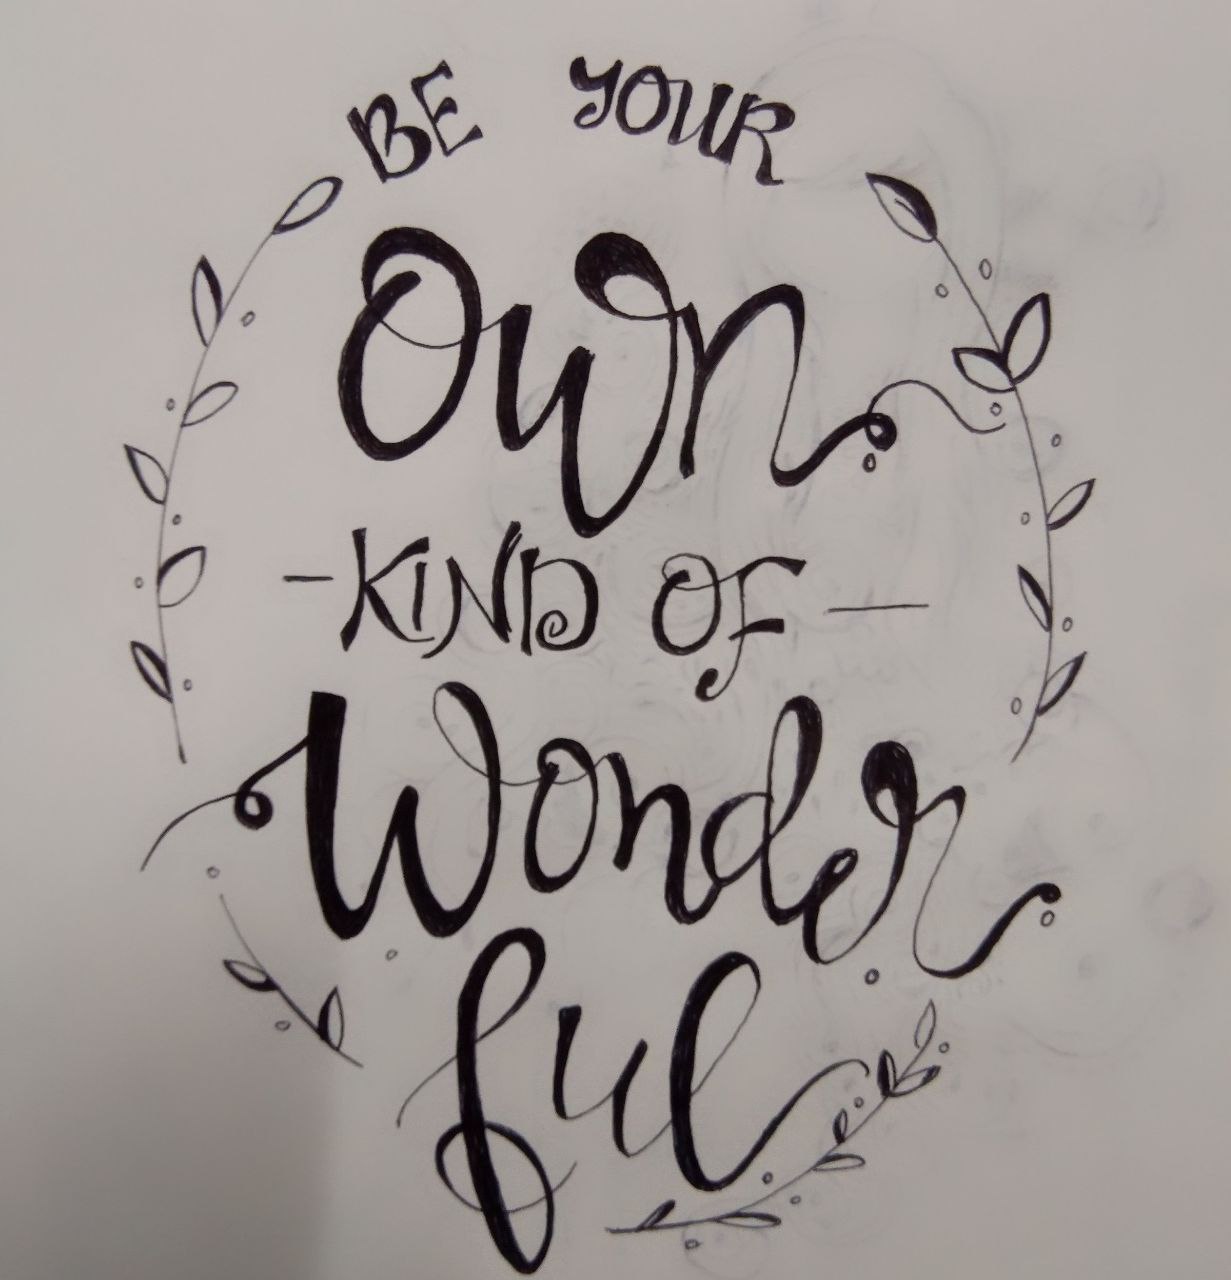 BE YOUR
Own
-KIND OF-
Wonder
ful